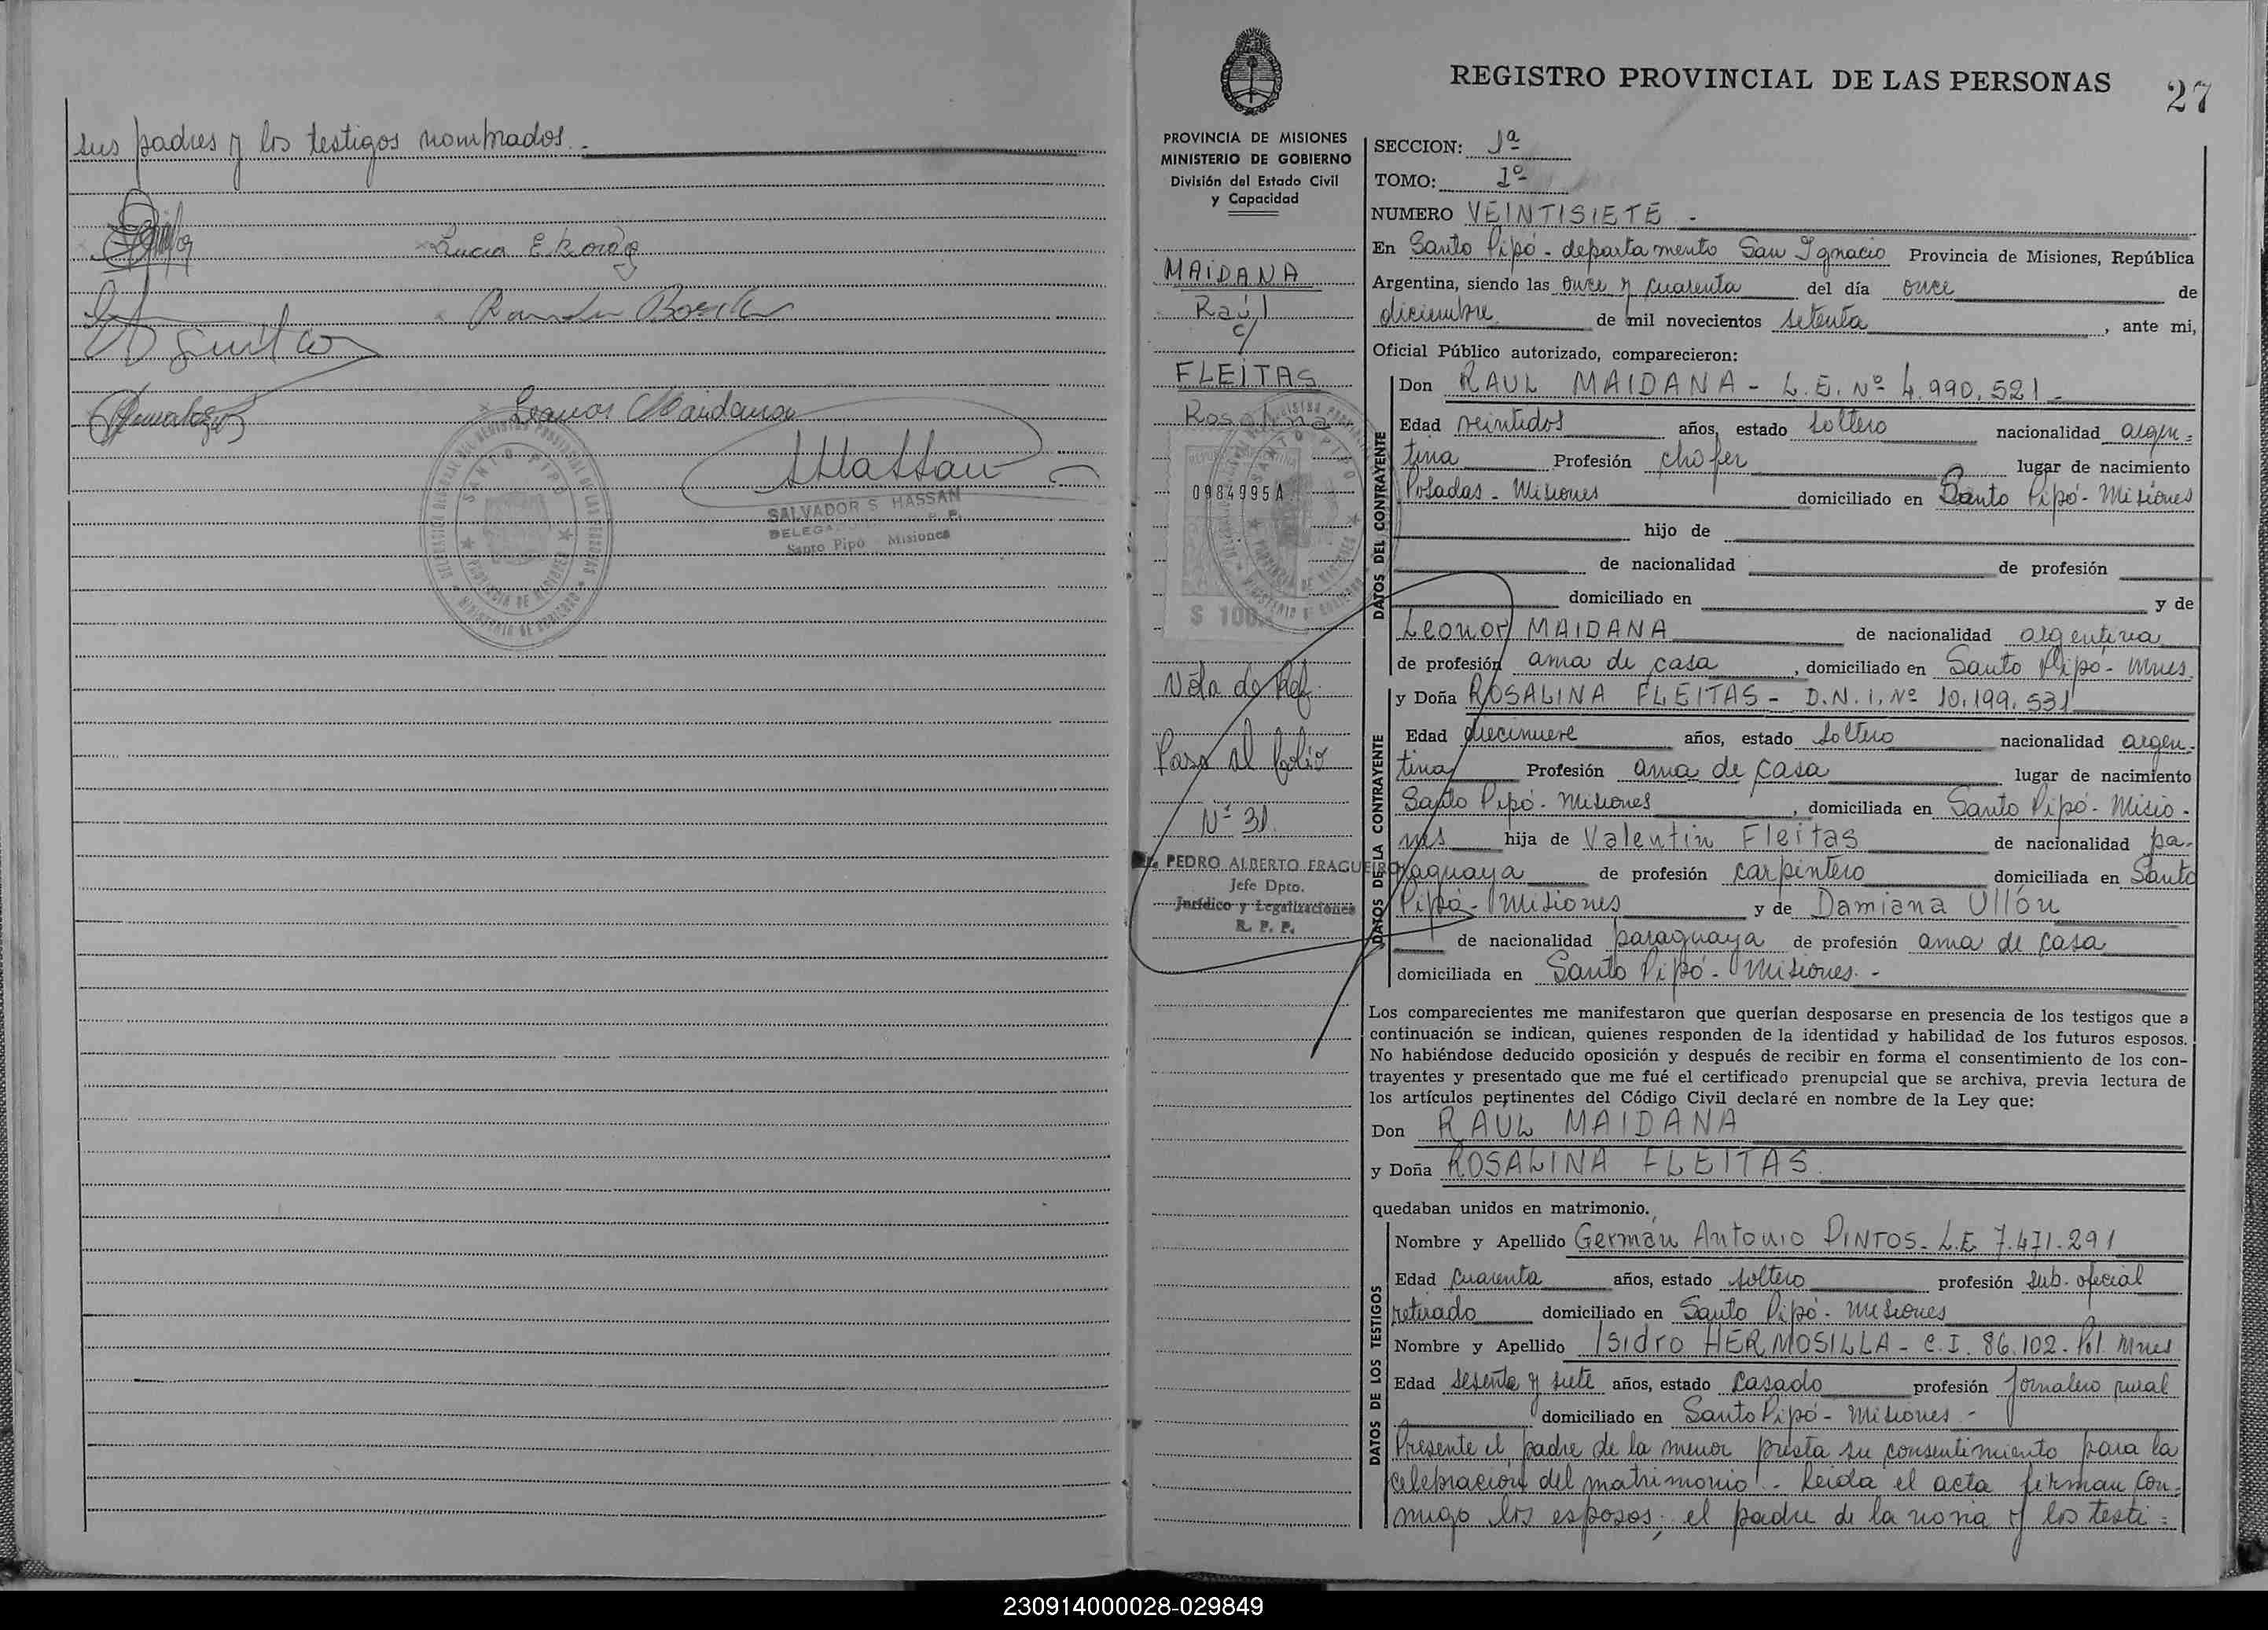 sus padres y los testigos nombrados.-
Lucia E
Leonor Maidana
SALVADOR S HASSAN
Santo Pipó Misiones
REGISTRO PROVINCIAL DE LAS PERSONAS
27
PROVINCIA DE MISIONES
MINISTERIO DE GOBIERNO
División del Estado Civil
y Capacidad
MAIDANA
Raúl
c/
FLEITAS
Rosalina
0984995A
$ 100
Nota de Ref.
Pasa al folio
Nº 31.
PEDRO ALBERTO FRAGUEIRO
Jefe Dpto.
Jurídico y Legalizaciones
R. P. P.
SECCION: 1ª
TOMO: 1º
NUMERO VEINTISIETE -
En Santo Pipó - departamento San Ignacio Provincia de Misiones, República
Argentina, siendo las once y cuarenta del día once de
diciembre de mil novecientos setenta, ante mi,
Oficial Público autorizado, comparecieron:
DATOS DEL CONTRAYENTE
Don RAUL MAIDANA - L.E. Nº 4.990.521 -
Edad veintidos años, estado soltero nacionalidad argen-
tina Profesión chofer lugar de nacimiento
Posadas - Misiones domiciliado en Santo Pipó - Misiones
hijo de
de nacionalidad de profesión
domiciliado en y de
Leonor MAIDANA de nacionalidad argentina
de profesión ama de casa, domiciliado en Santo Pipó - Mnes.
DATOS DE LA CONTRAYENTE
y Doña ROSALINA FLEITAS - D.N.I. Nº 10.199.531
Edad diecinueve años, estado soltera nacionalidad argen-
tina Profesión ama de casa lugar de nacimiento
Santo Pipó - Misiones, domiciliada en Santo Pipó - Misio-
nes hija de Valentin Fleitas de nacionalidad pa-
raguaya de profesión carpintero domiciliada en Santo
Pipó - Misiones y de Damiana Ullón
de nacionalidad paraguaya de profesión ama de casa
domiciliada en Santo Pipó - Misiones. -
Los comparecientes me manifestaron que querían desposarse en presencia de los testigos que a
continuación se indican, quienes responden de la identidad y habilidad de los futuros esposos.
No habiéndose deducido oposición y después de recibir en forma el consentimiento de los con-
trayentes y presentado que me fué el certificado prenupcial que se archiva, previa lectura de
los artículos pertinentes del Código Civil declaré en nombre de la Ley que:
Don RAUL MAIDANA
y Doña ROSALINA FLEITAS.
quedaban unidos en matrimonio.
DATOS DE LOS TESTIGOS
Nombre y Apellido Germán Antonio PINTOS - L.E. 7.471.291
Edad cuarenta años, estado soltero profesión sub-oficial
retirado domiciliado en Santo Pipó - Misiones
Nombre y Apellido Isidro HERMOSILLA - C.I. 86.102 - Pol. Mnes
Edad sesenta y siete años, estado casado profesión jornalero rural
domiciliado en Santo Pipó - Misiones -
Presente el padre de la menor presta su consentimiento para la
celebración del matrimonio. - Leida el acta firman con-
migo los esposos, el padre de la novia y los testi-
230914000028-029849